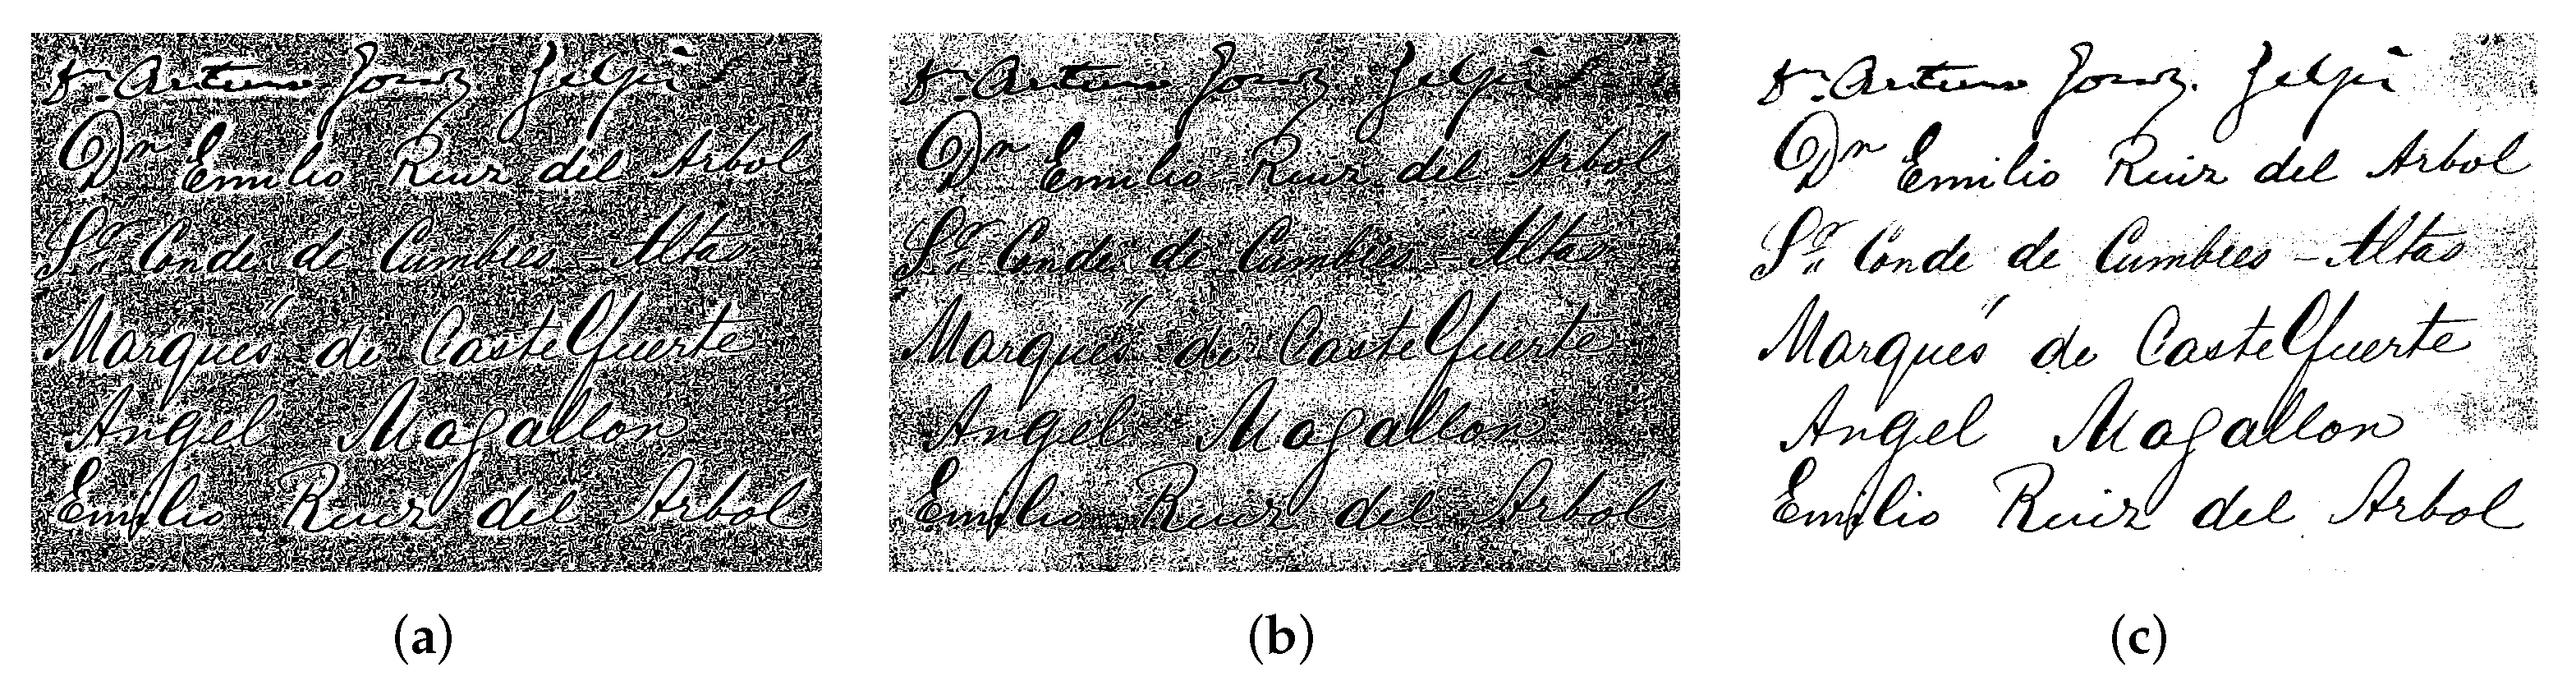 Arturo Gonz. Gelpi
Dn Emilio Ruiz del Arbol
Sr. Conde de Cumbres - Altas
Marqués de Castelfuerte
Angel Magallon
Emilio Ruiz del Arbol
(a)
Arturo Gonz. Gelpi
Dn Emilio Ruiz del Arbol
Sr. Conde de Cumbres - Altas
Marqués de Castelfuerte
Angel Magallon
Emilio Ruiz del Arbol
(b)
Arturo Gonz. Gelpi
Dn Emilio Ruiz del Arbol
Sr. Conde de Cumbres - Altas
Marqués de Castelfuerte
Angel Magallon
Emilio Ruiz del Arbol
(c)